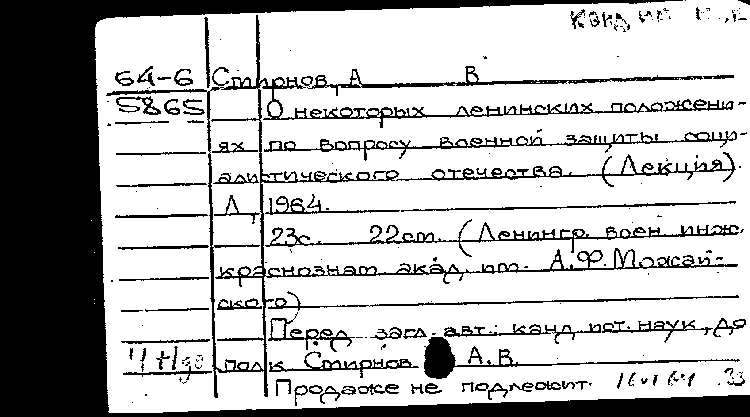 канд
64-6 Смирнов, А В
5865 О некоторых ленинских положени-
ях по вопросу военной защиты соци-
алистического отечества. (Лекция).
Л, 1964.
23с. 22cm. (Ленингр. воен инж.
краснознам акад. им. А.Ф. Можай-
ского)
Перед загл. авт.: канд ист. наук, до
полк Смирнов А.В.
Продаже не подлежит. 16 VI 64 33